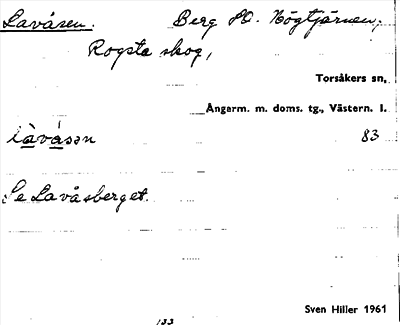 Lavåsen. Berg SO. Högtjärnen,
Rogsta skog,
Torsåkers sn.
Ångerm. m. doms. tg., Västern. l.
làvåsən 83
Se Lavåsberget.
Sven Hiller 1961
133